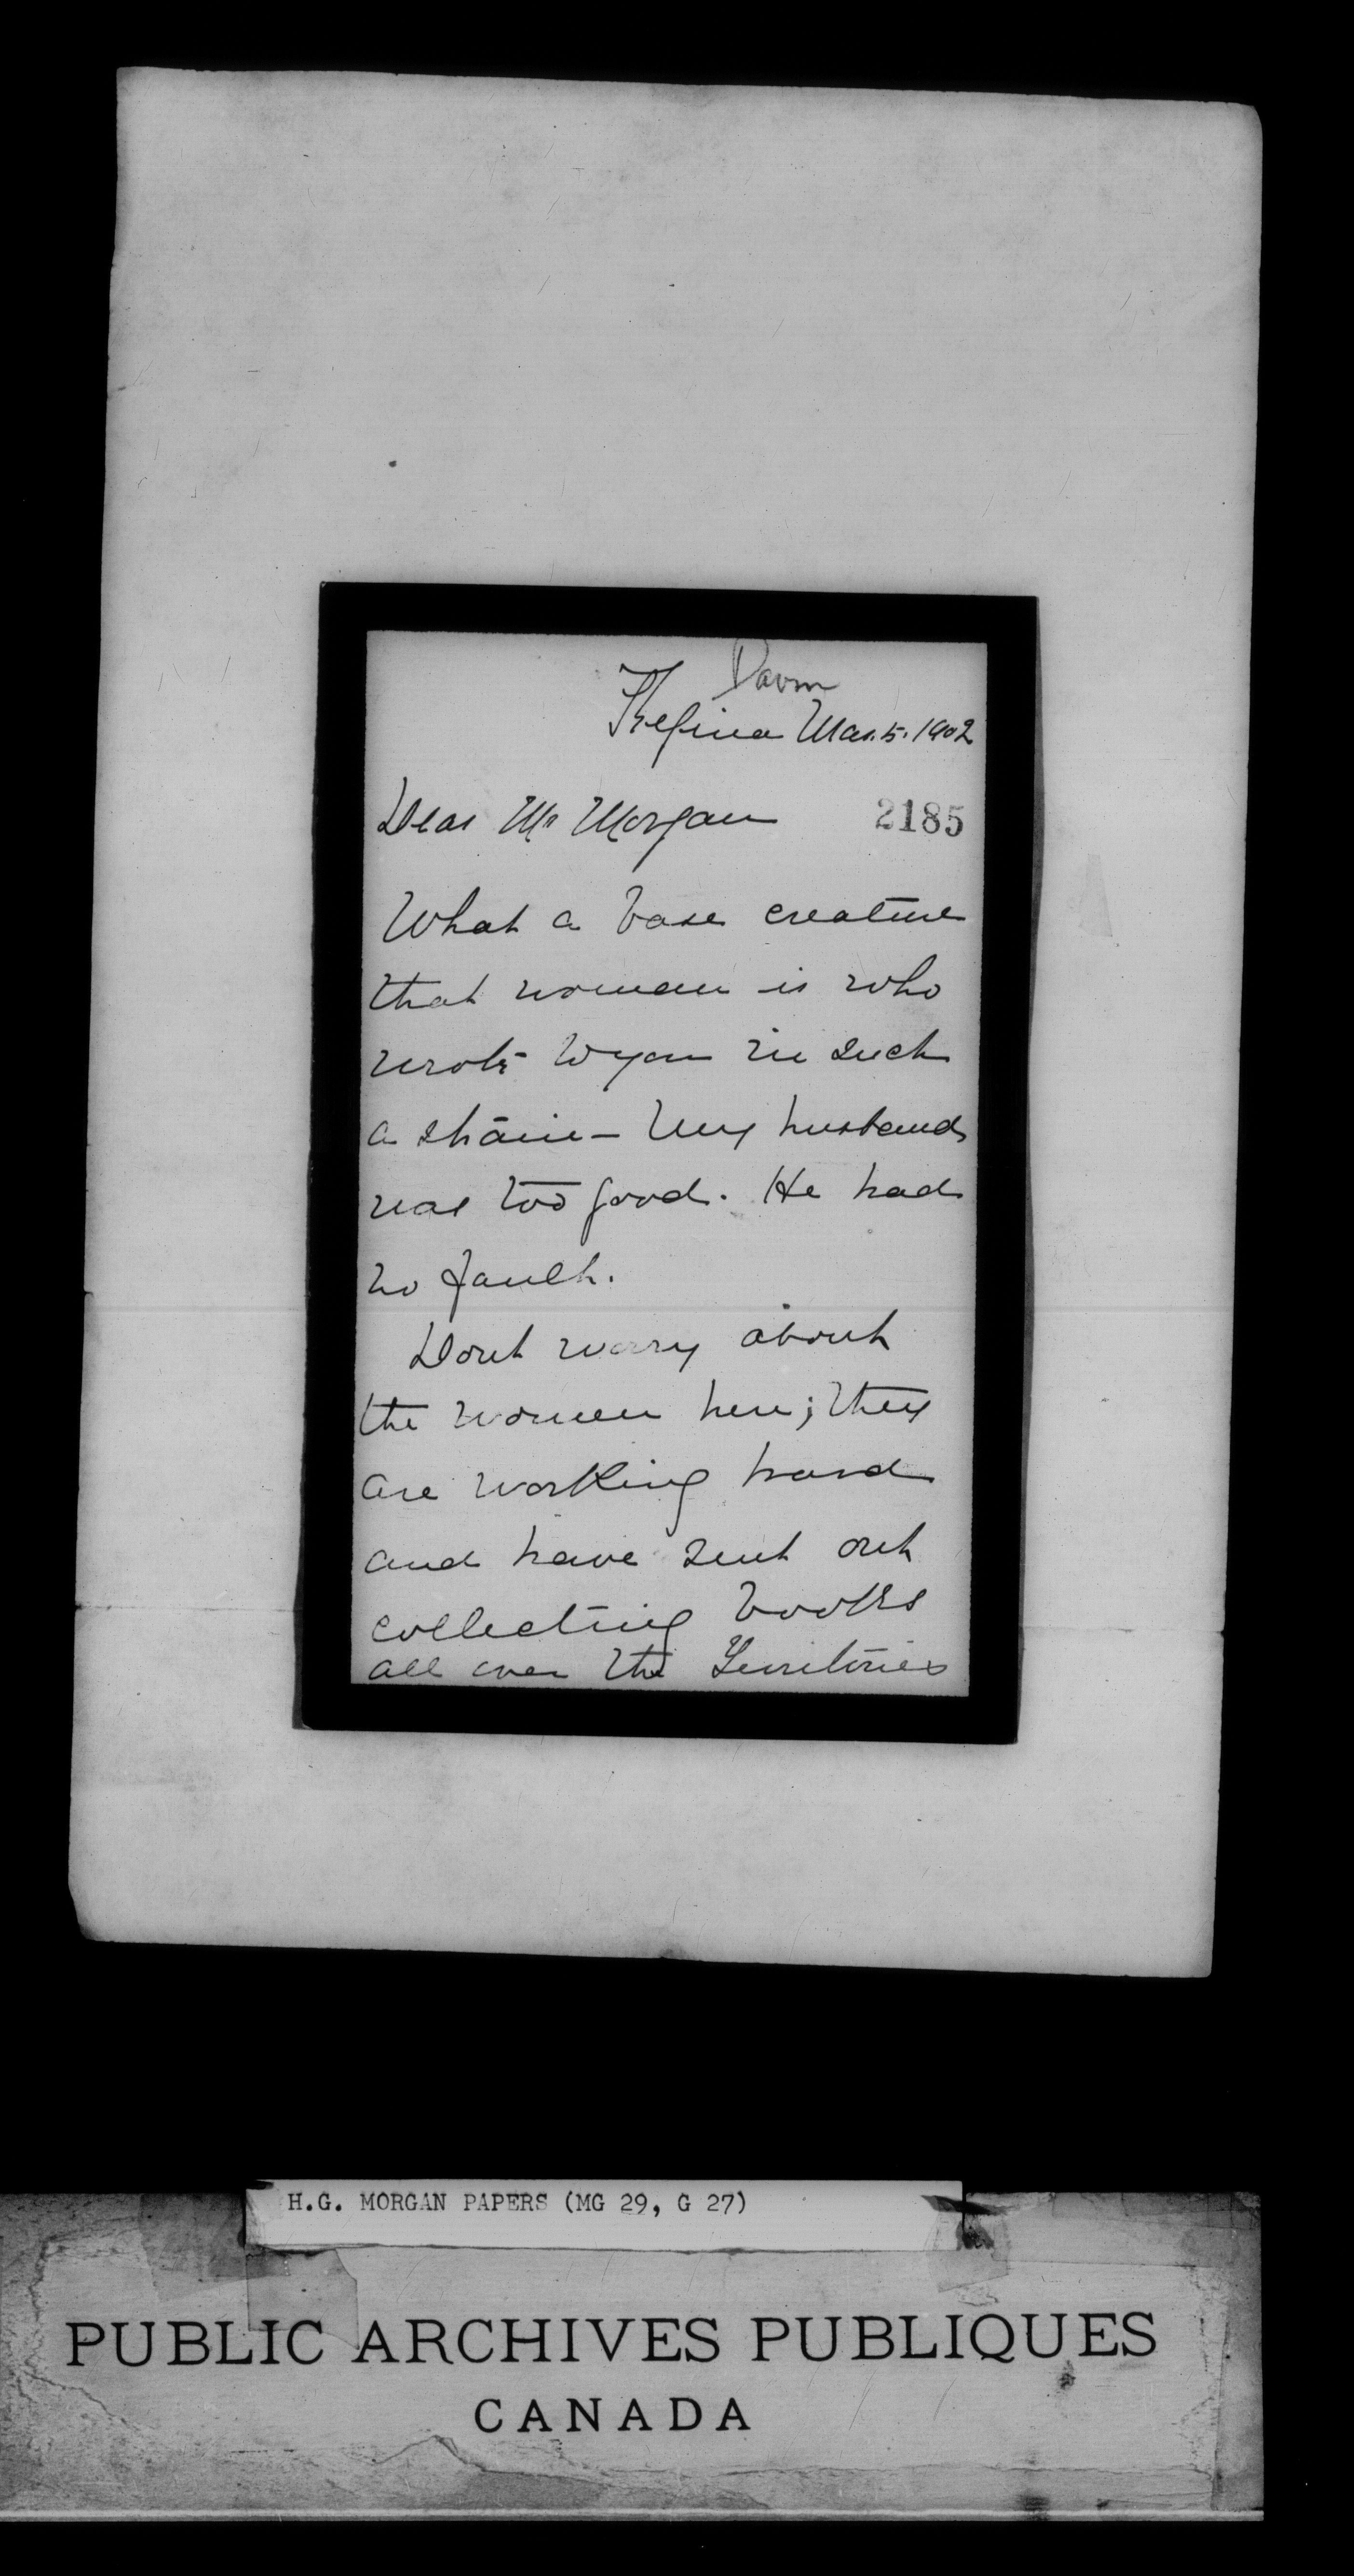 Davin
Regina Mar. 5. 1902
Dear Mr Morgan
2185
What a base creature
that woman is who
wrote to you in such
a strain – My husband
was too good. He had
no fault.
Dont worry about
the women here; they
are working hard
and have sent out
collecting books
all over the Territories
H.G. MORGAN PAPERS (MG 29, G 27)
PUBLIC ARCHIVES PUBLIQUES
CANADA